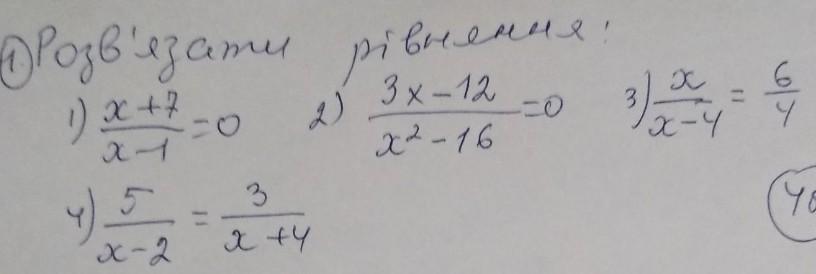 1. Розв'язати рівняння:
1) x+7/x-1=0 2) 3x-12/x²-16=0 3) x/x-4=6/4
4) 5/x-2=3/x+4